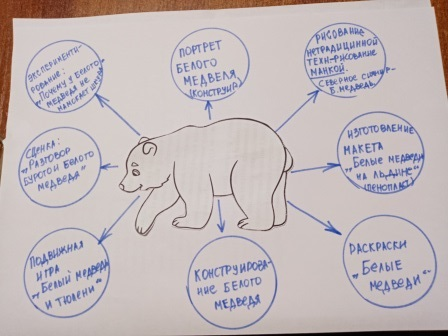 ЭКСПЕРИМЕНТИ-
РОВАНИЕ:
„Почему у белого
медведя не
намокает шерсть
ПОРТРЕТ
БЕЛОГО
МЕДВЕДЯ
(КОНСТРУИР.)
РИСОВАНИЕ
НЕТРАДИЦИННОЙ
ТЕХН-РИСОВАНИЕ
МАНКОЙ.
СЕВЕРНОЕ
Б. МЕДВЕДЬ
СЦЕНКА:
„РАЗГОВОР
БУРОГО И БЕЛОГО
МЕДВЕДЯ"
ИЗГОТОВЛЕНИЕ
МАКЕТА
„БЕЛЫЕ МЕДВЕДИ
НА ЛЬДИНЕ"
(ПЕНОПЛАСТ)
ПОДВИЖНАЯ
ИГРА
„БЕЛЫЙ МЕДВЕДЬ
И ТЮЛЕНИ"
КОНСТРУИРОВА-
НИЕ БЕЛОГО
МЕДВЕДЯ
РАСКРАСКИ
„БЕЛЫЕ
МЕДВЕДИ"